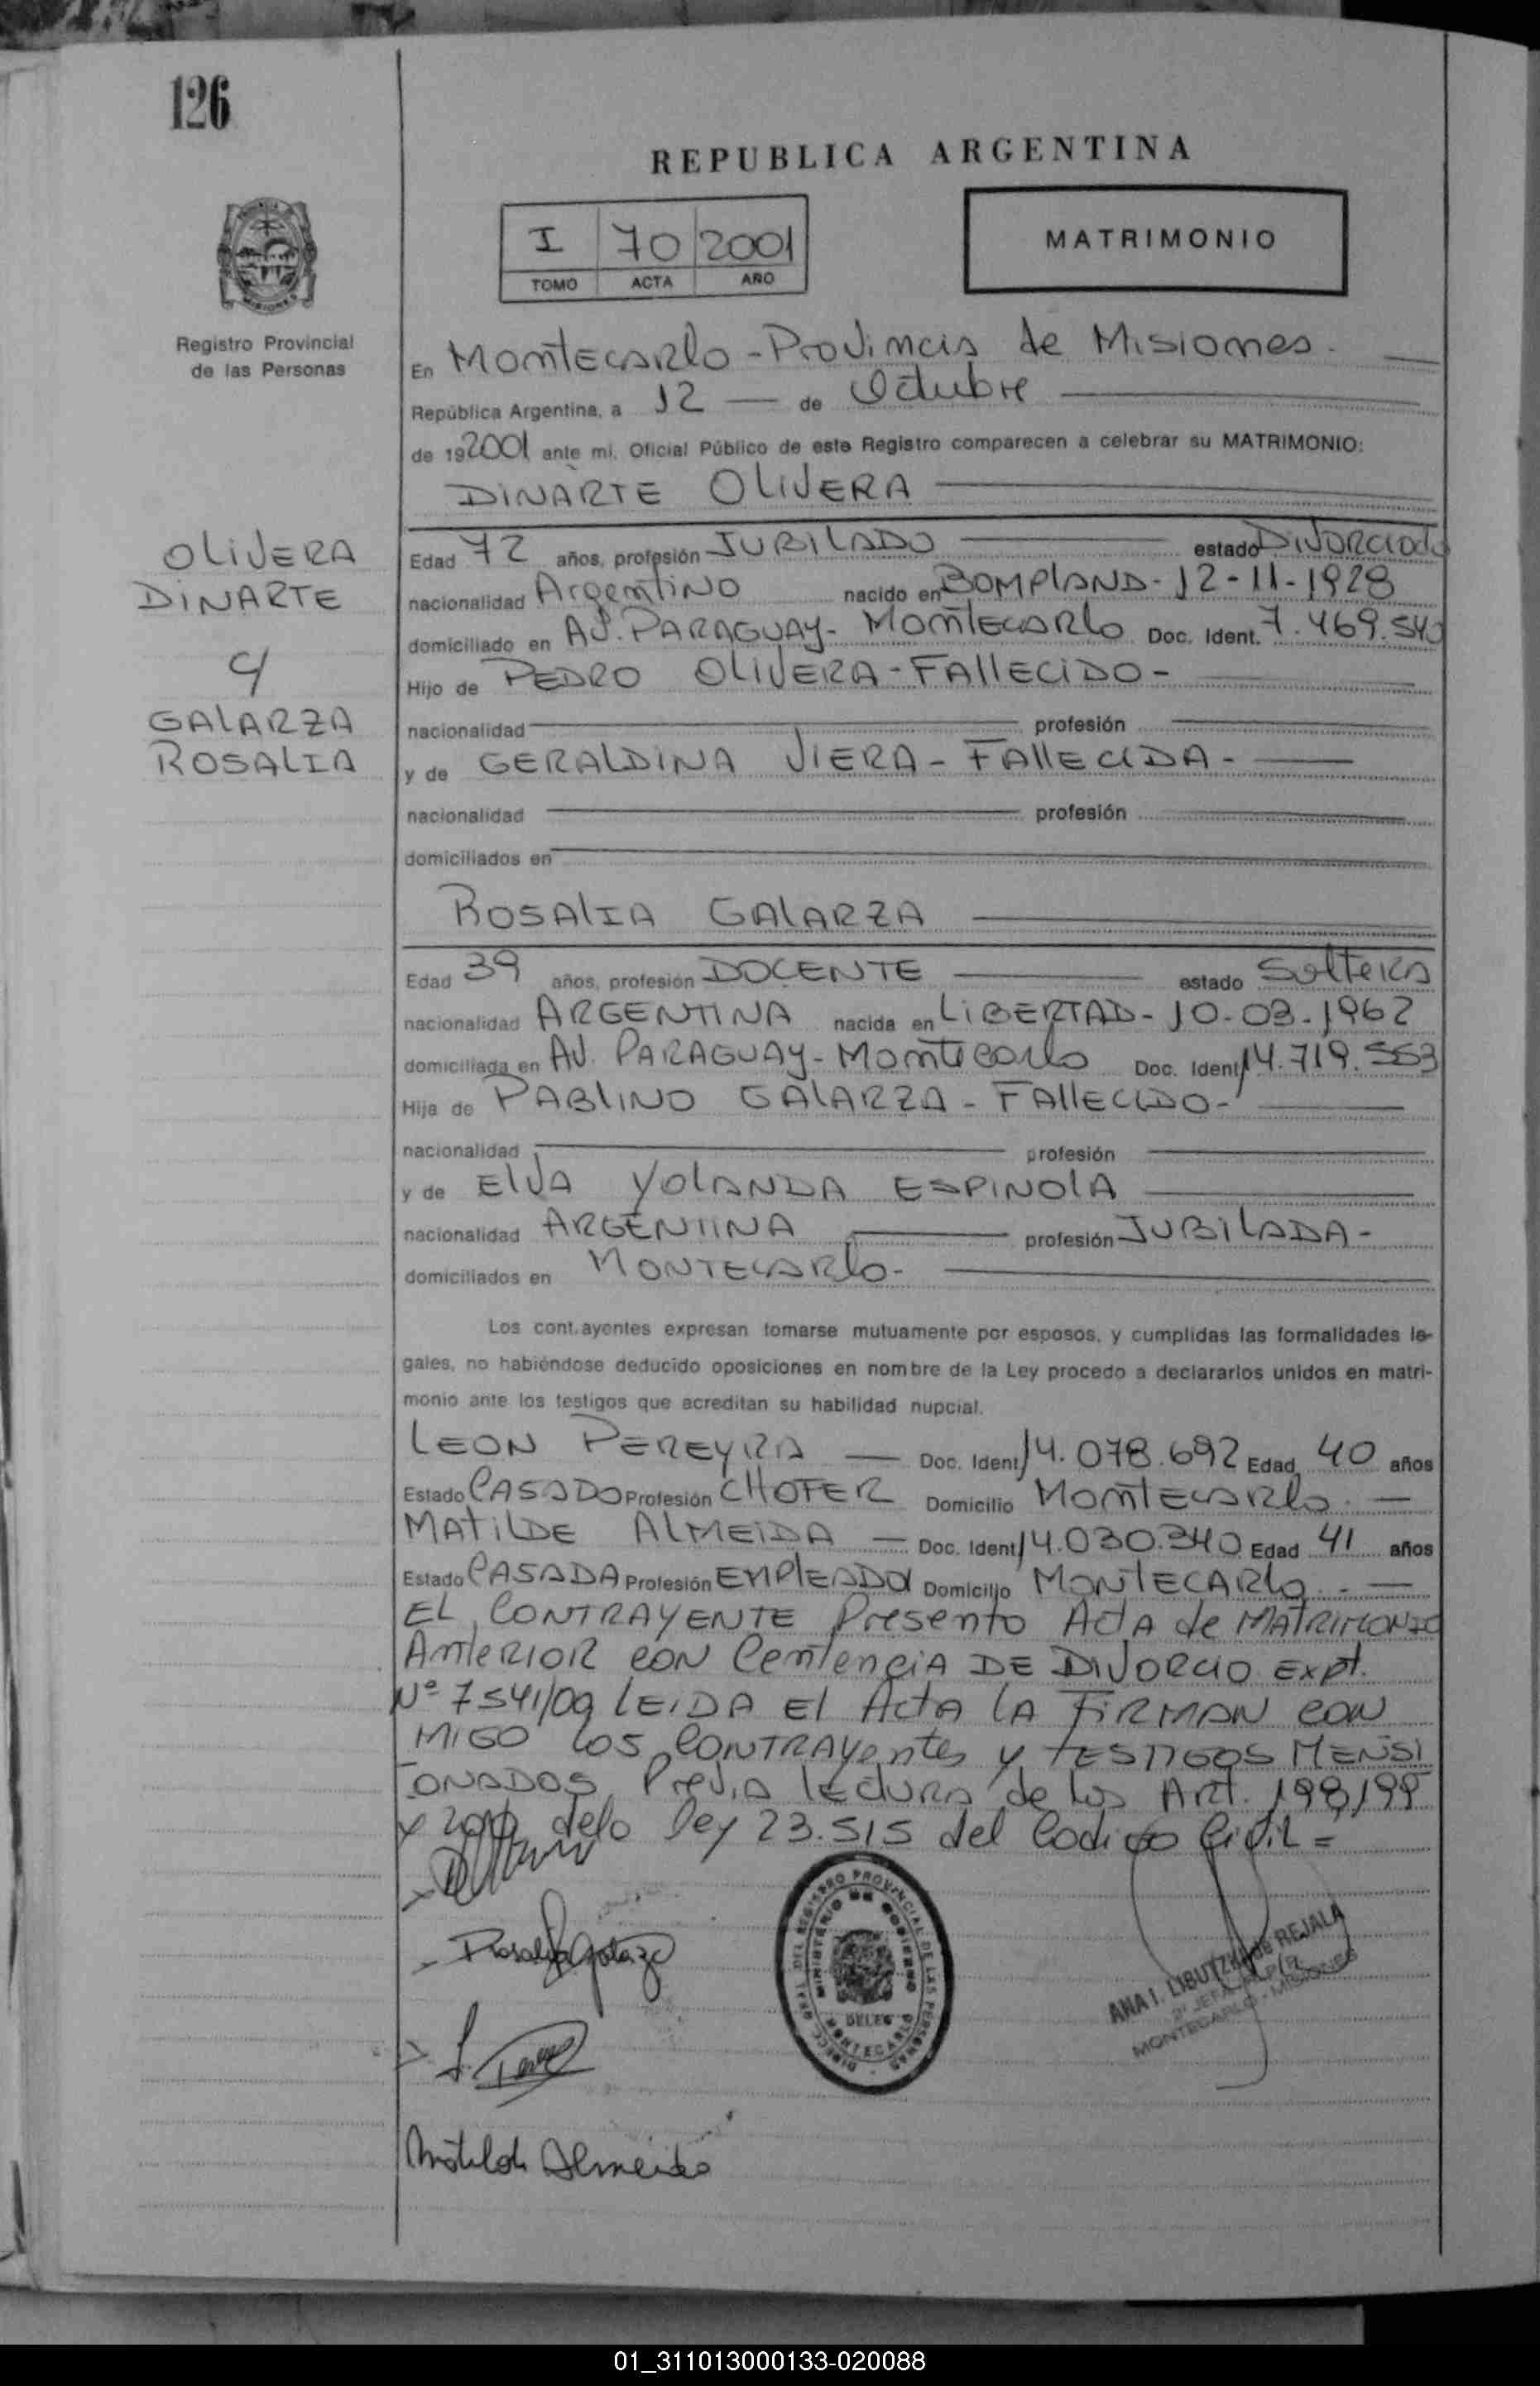 126
REPUBLICA ARGENTINA
I 70 2001
TOMO ACTA AÑO
MATRIMONIO
Registro Provincial
de las Personas
En Montecarlo - Provincia de Misiones.
República Argentina, a 12 de Octubre
de 192001 ante mi, Oficial Público de este Registro comparecen a celebrar su MATRIMONIO:
DINARTE OLIVERA
OLIVERA
DINARTE
c/
GALARZA
ROSALIA
Edad 72 años, profesión JUBILADO estado Divorciado
nacionalidad Argentino nacido en BOMPLAND - 12-11-1928
domiciliado en AV. PARAGUAY - Montecarlo Doc. Ident. 7.469.540
Hijo de PEDRO OLIVERA - FALLECIDO -
nacionalidad profesión
y de GERALDINA VIERA - FALLECIDA -
nacionalidad profesión
domiciliados en
ROSALIA GALARZA
Edad 39 años, profesión DOCENTE estado Soltera
nacionalidad ARGENTINA nacida en LIBERTAD - 10-03-1962
domiciliada en AV. PARAGUAY - Montecarlo Doc. Ident. 14.719.553
Hija de PABLINO GALARZA - FALLECIDO -
nacionalidad profesión
y de ELVA YOLANDA ESPINOLA
nacionalidad ARGENTINA profesión JUBILADA -
domiciliados en MONTECARLO -
Los contrayentes expresan tomarse mutuamente por esposos, y cumplidas las formalidades le-
gales, no habiéndose deducido oposiciones en nombre de la Ley procedo a declararlos unidos en matri-
monio ante los testigos que acreditan su habilidad nupcial.
LEON PEREYRA Doc. Ident 14.078.692 Edad 40 años
Estado CASADO Profesión CHOFER Domicilio Montecarlo.
MATILDE ALMEIDA Doc. Ident 14.030.340 Edad 41 años
Estado CASADA Profesión EMPLEADA Domicilio MONTECARLO.
EL CONTRAYENTE Presento Acta de MATRIMONIO
Anterior con Centencia DE DIVORCIO Expt.
Nº 7541/09 LEIDA El Acta LA FIRMAN CON
MIGO LOS CONTRAYentes y TESTIGOS MENSI
ONADOS Previa lectura de los Art. 198,199
y 200 de la ley 23.515 del Codigo Civil =
Rosalia Galarza
Matilde Almeida
DIRECC. GRAL. DEL REGISTRO PROVINCIAL DE LAS PERSONAS
MINISTERIO DE GOBIERNO
DELEG.
MONTECARLO
ANA I. REJALA
MONTECARLO - MISIONES
01_311013000133-020088